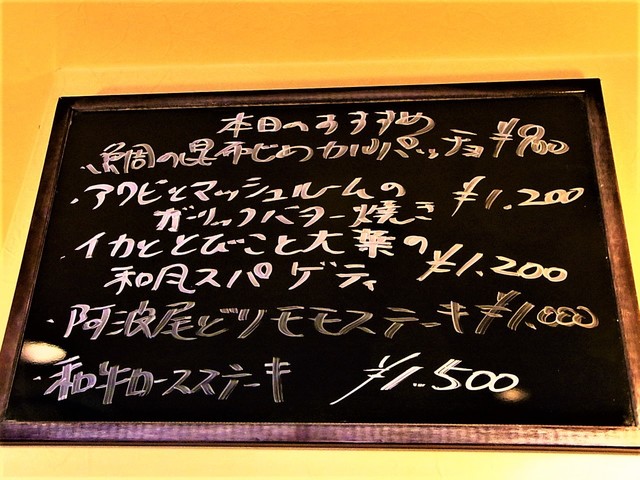 本日のおすすめ
・鯛の昆布じめカルパッチョ ¥900
・アワビとマッシュルームの ¥1.200
ガーリックバター焼き
・イカととびこと大葉の
和風スパゲティ ¥1.200
・阿波尾どりモモステーキ ¥1.000
・和牛ロースステーキ ¥1.500